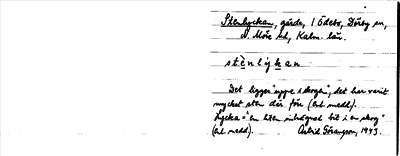 Stenlyckan, gärde, i Ödebo, Dörby sn,
N. Möre hd, Kalm. län.
stènlykan
Det ligger "uppe i skogen", det har varit
mycket sten där förr (enl. medd).
Lycka = "en liten inhägnad bit i en skog"
(enl. medd). Astrid Göransson, 1943.